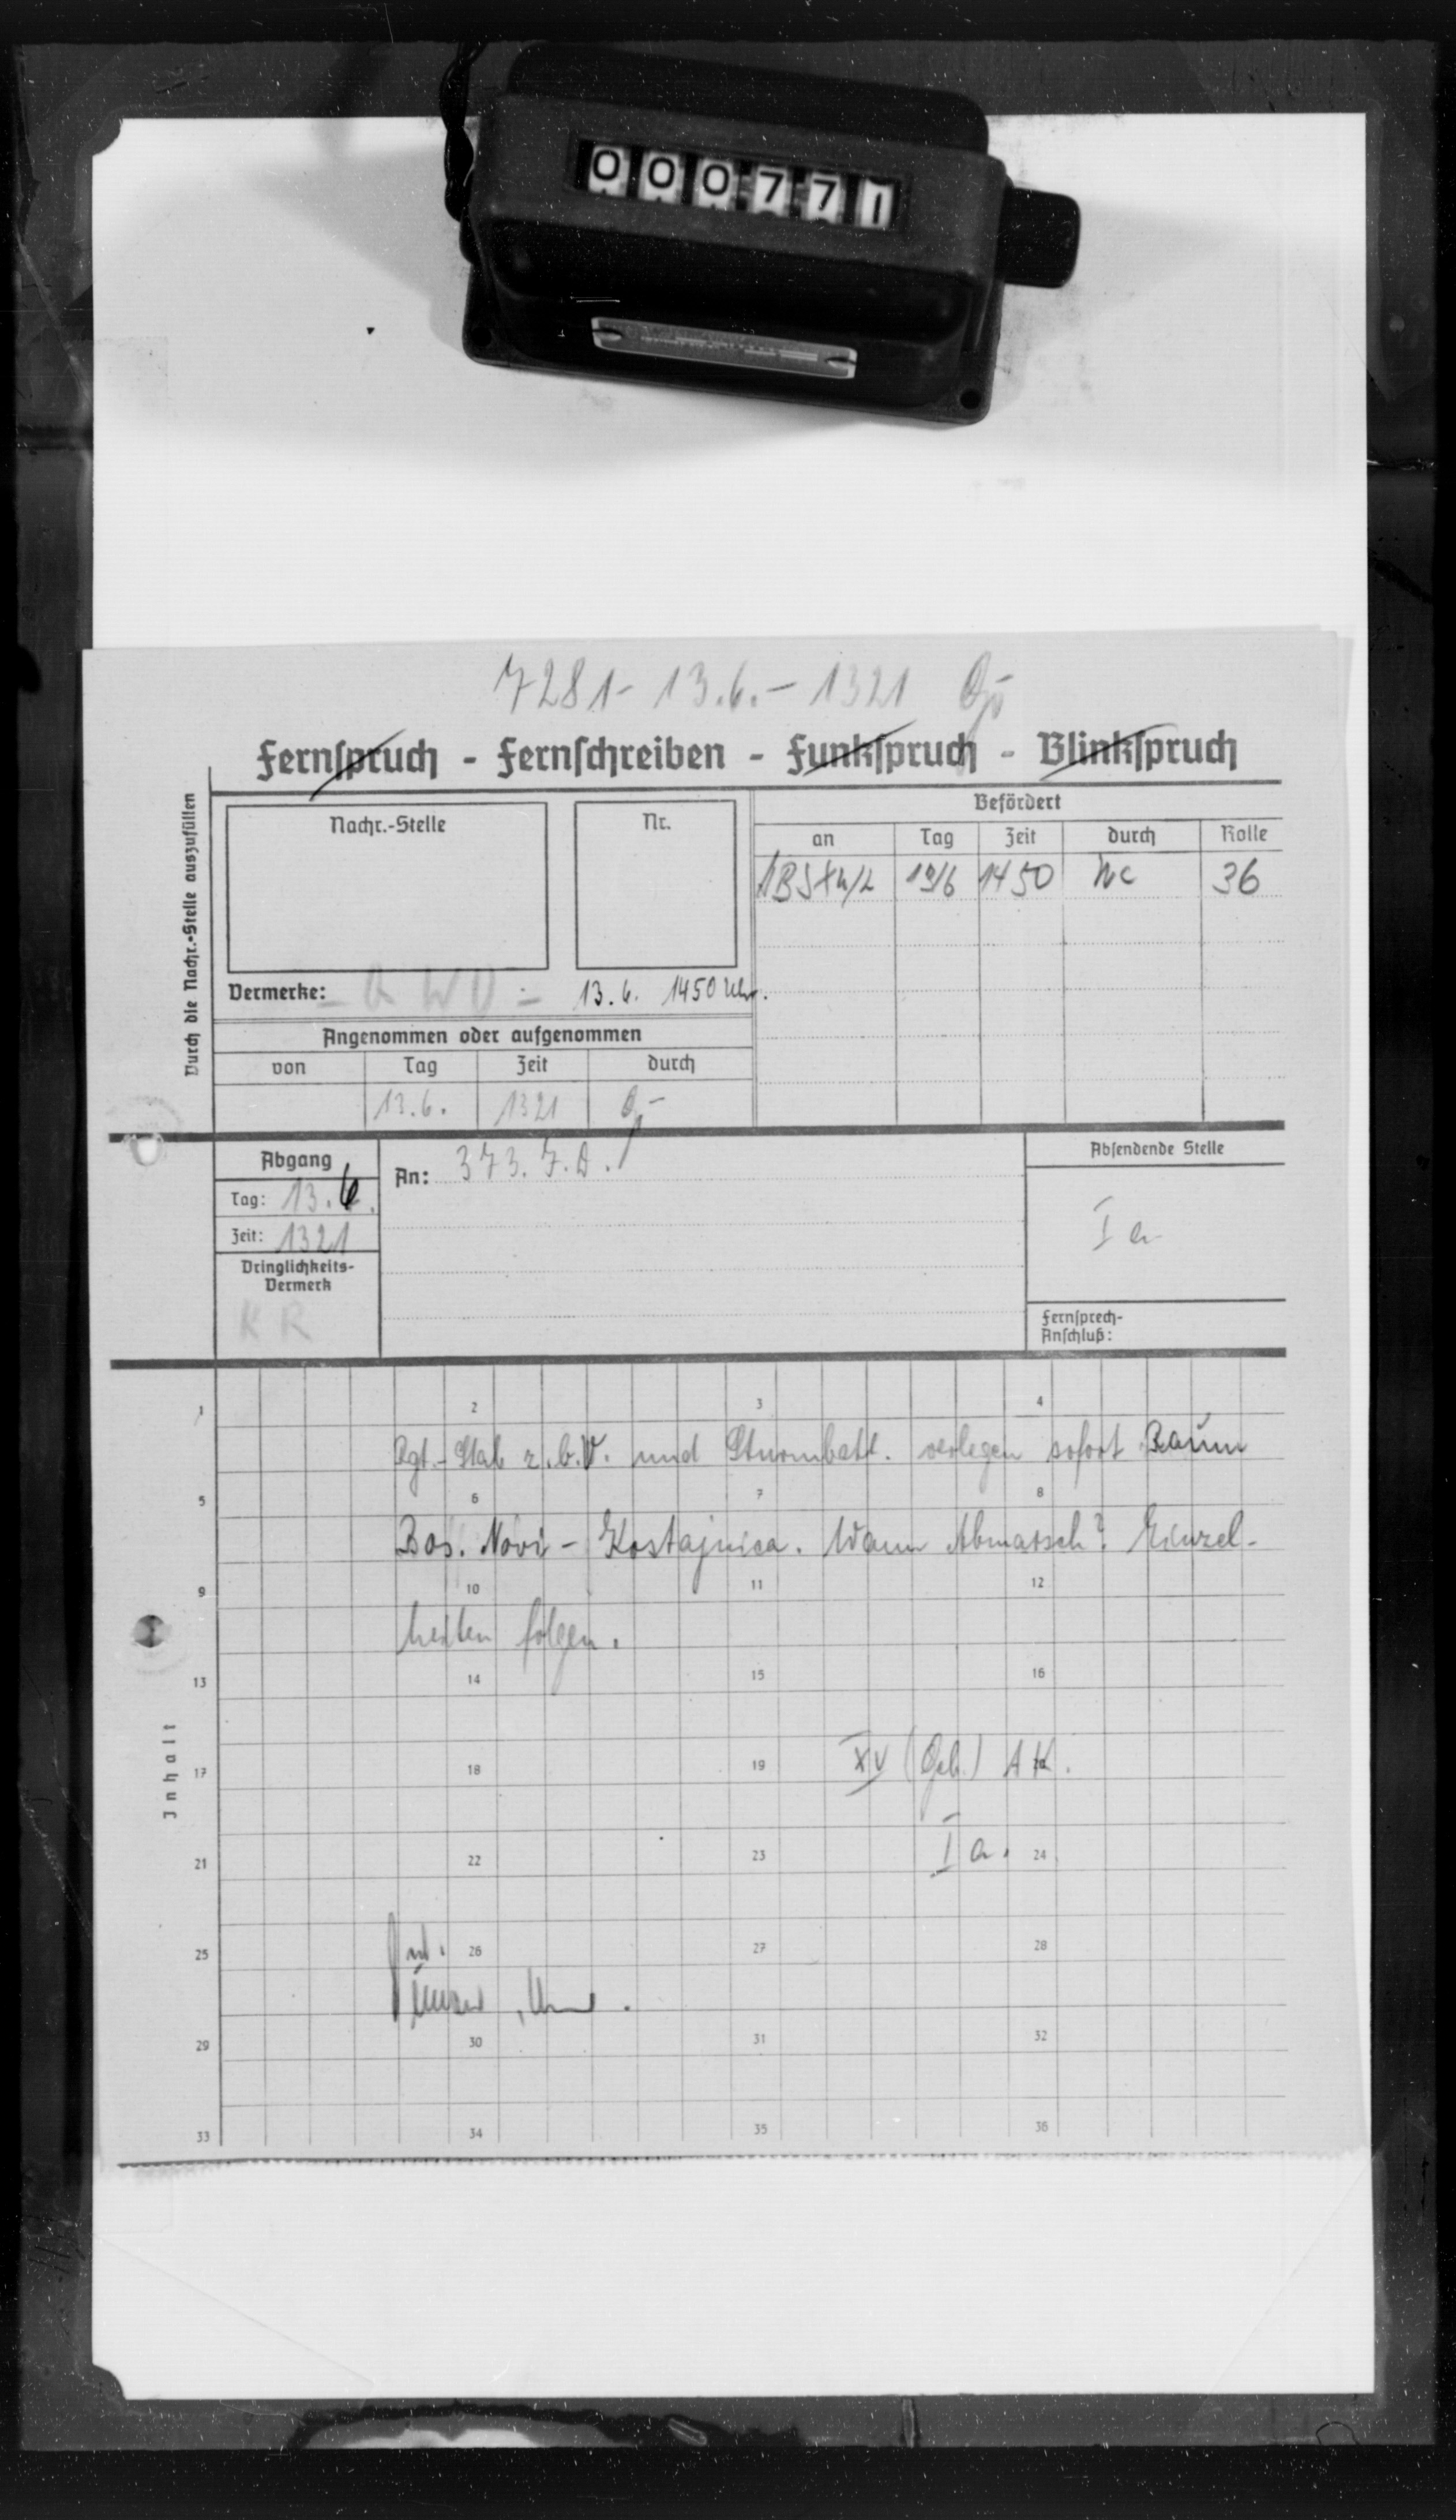 000771
7281 - 13.6. - 1321
Fernspruch - Fernschreiben - Funkspruch - Blinkspruch
Durch die Nachr.-Stelle auszufüllen
Nachr.-Stelle
Nr.
Befördert
an Tag Zeit durch Rolle
1450 36
Vermerke: 13.6. 1450 Uhr.
Angenommen oder aufgenommen
von Tag Zeit durch
13.6. 1321
Abgang
Tag: 13.6.
Zeit: 1321
Dringlichkeits-
Vermerk
KR
An: 373. J.D.
Absendende Stelle
Ia
Fernsprech-
Anschluß:
Inhalt
1 2 3 4
Rgt.-Stab z.b.V. und Sturmbatl. verlegen sofort Raum
5 6 7 8
Bos. Novi - Kostajnica. Wann Abmarsch? Einzel-
9 10 11 12
heiten folgen.
13 14 15 16
XV (Geb.) AK.
17 18 19 20
Ia.
21 22 23 24
25 26 27 28
29 30 31 32
33 34 35 36